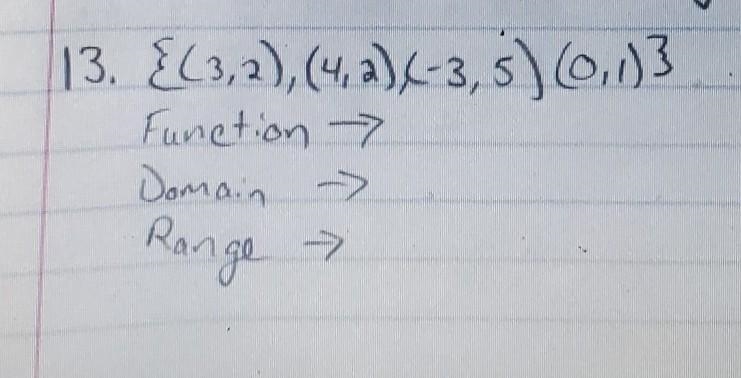 13. {(3,2),(4,2)(-3,5)(0,1)}
Function →
Domain →
Range →